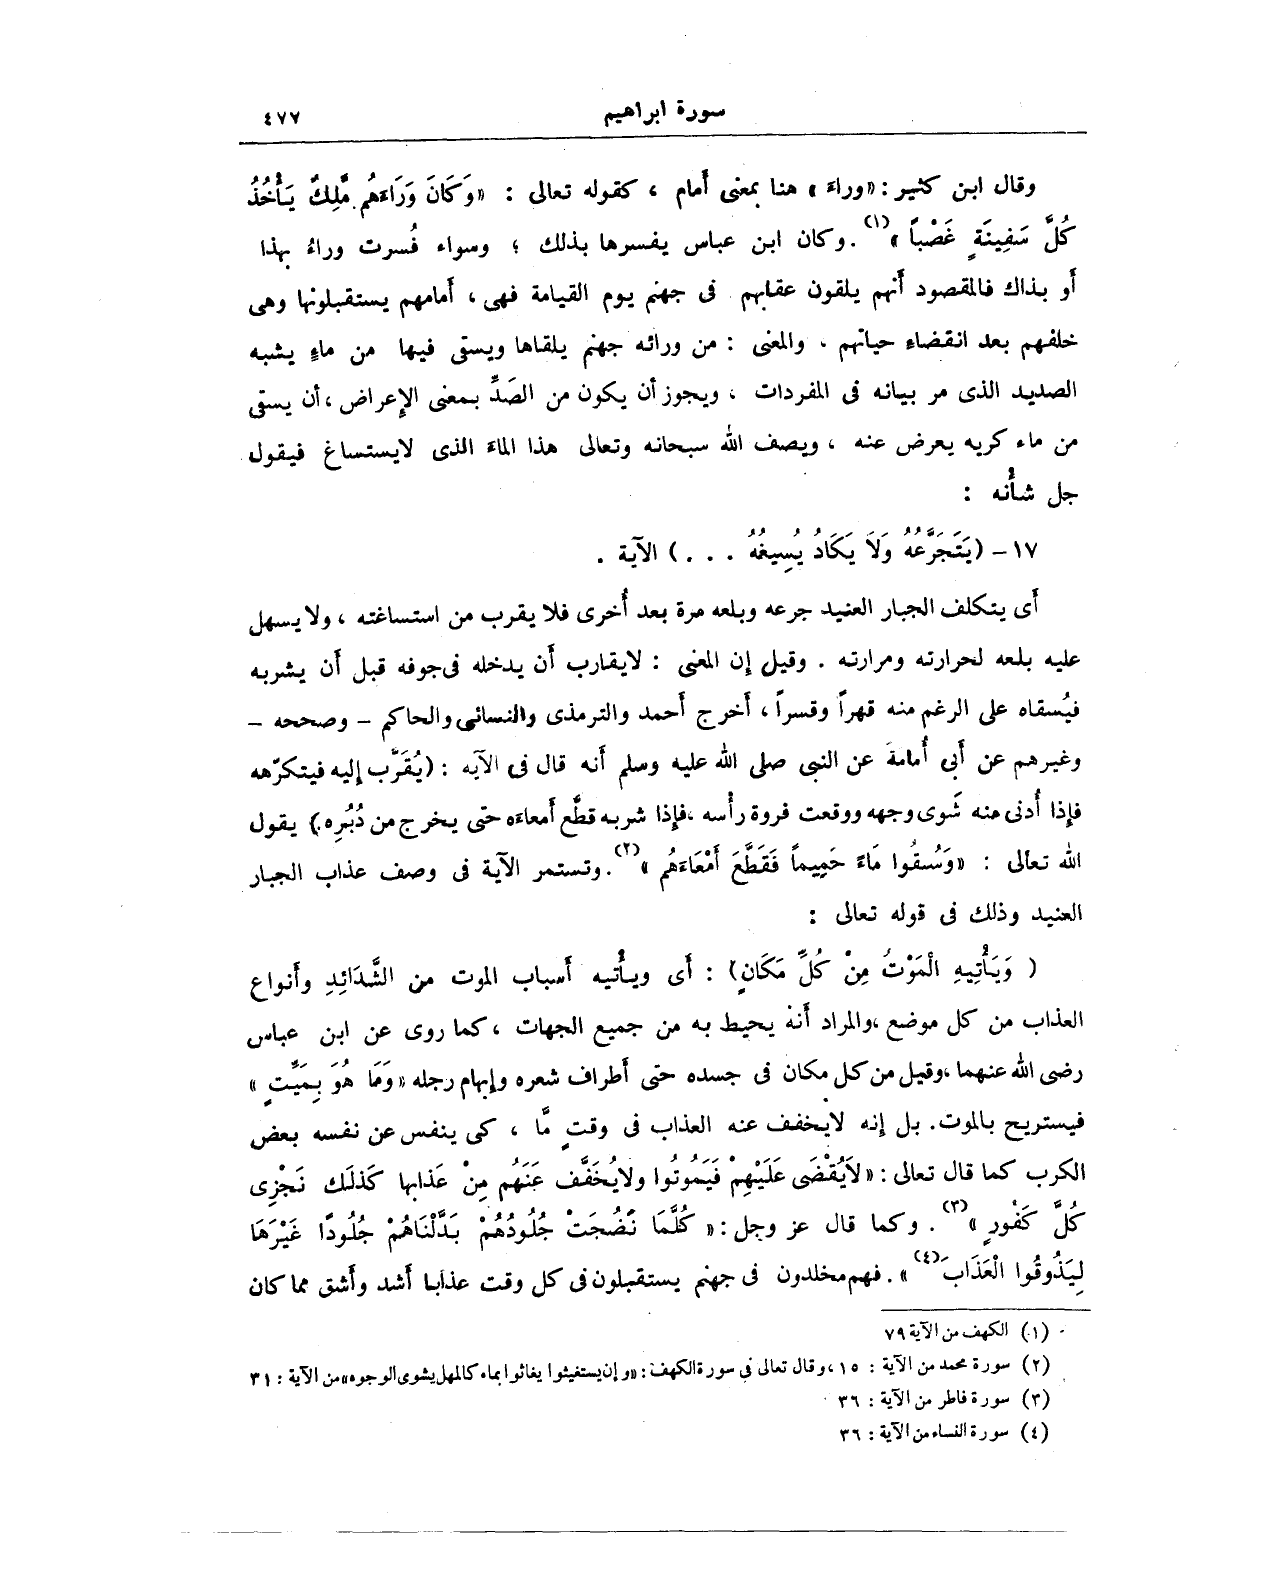 سورة ابراهيم
٤٧٧
وقال ابن كثير : «وراءَ » هنا بمعنى أَمام ، كقوله تعالى : «وَكَانَ وَرَاءَهُم مَّلِكٌ يَأْخُذُ
كُلَّ سَفِينَةٍ غَصْباً »(١). وكان ابن عباس يفسرها بذلك ؛ وسواء فُسرت وراءُ بهذا
أَو بذاك فالمقصود أَنهم يلقون عقابهم فى جهنم يوم القيامة فهى ، أَمامهم يستقبلونها وهى
خلفهم بعد انقضاءِ حياتهم . والمعنى : من ورائه جهنم يلقاها ويسقى فيها من ماءٍ يشبه
الصديد الذى مر بيانه فى المفردات ، ويجوز أَن يكون من الصَدِّ بمعنى الإِعراض ، أَن يسقى
من ماء كريه يعرض عنه ، ويصف الله سبحانه وتعالى هذا الماءَ الذى لايستساغ فيقول
جل شأْنه :
١٧ - (يَتَجَرَّعُهُ وَلاَ يَكَادُ يُسِيغُهُ . . . ) الآية .
أَى يتكلف الجبار العنيد جرعه وبلعه مرة بعد أُخرى فلا يقرب من استساغته ، ولا يسهل
عليه بلعه لحرارته ومرارته . وقيل إِن المعنى : لايقارب أَن يدخله فى جوفه قبل أَن يشربه
فيُسقاه على الرغم منه قهراً وقسراً ، أَخرج أَحمد والترمذى والنسائى والحاكم - وصححه -
وغيرهم عن أَبى أُمامةَ عن النبى صلى الله عليه وسلم أَنه قال فى الآيه : (يُقَرَّب إِليه فيتكرّهه
فإِذا أُدنى منه شَوى وجهه ووقعت فروة رأْسه ، فإِذا شربه قطَّع أَمعاءَه حتى يخرج من دُبُرِه) يقول
الله تعالى : «وَسُقُوا مَاءً حَمِيماً فَقَطَّعَ أَمْعَاءَهُم »(٢). وتستمر الآية فى وصف عذاب الجبار
العنيد وذلك فى قوله تعالى :
( وَيَأْتِيهِ الْمَوْتُ مِنْ كُلِّ مَكَانٍ) : أَى ويأْتيه أَسباب الموت من الشَّدَائِدِ وأَنواع
العذاب من كل موضع ، والمراد أَنه يحيط به من جميع الجهات ، كما روى عن ابن عباس
رضى الله عنهما ، وقيل من كل مكان فى جسده حتى أَطراف شعره وإِبهام رجله «وَمَا هُوَ بِمَيِّتٍ »
فيستريح بالموت. بل إِنه لايخفف عنه العذاب فى وقتٍ مَّا ، كى ينفس عن نفسه بعض
الكرب كما قال تعالى : «لاَيُقْضَى عَلَيْهِمْ فَيَمُوتُوا ولايُخَفَّف عَنَهُم مِنْ عَذابها كَذلَك نَجْزِى
كُلَّ كَفُورٍ »(٣). وكما قال عز وجل : « كُلَّمَا نَضُجَتْ جُلُودُهُمْ بَدَّلْنَاهُمْ جُلُودًا غَيْرَهَا
لِيَذُوقُوا الْعَذَابَ(٤)». فهم مخلدون فى جهنم يستقبلون فى كل وقت عذابا أَشد وأَشق مما كان
(١) الكهف من الآية ٧٩
(٢) سورة محمد من الآية : ١٥ ، وقال تعالى في سورة الكهف : «وإن يستغيثوا يغاثوا بماء كالمهل يشوى الوجوه» من الآية : ٣١
(٣) سورة فاطر من الآية : ٣٦
(٤) سورة النساء من الآية : ٣٦